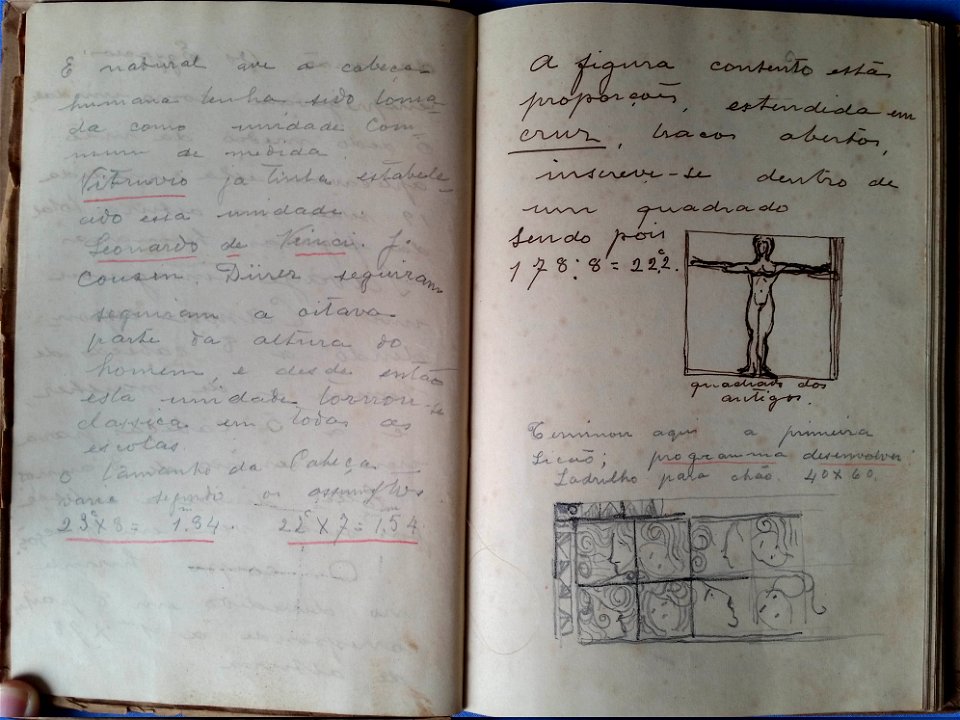 É natural que a cabeça
humana tenha sido toma
da como unidade com
mum de medida
Vitruvio ja tinha estabele-
cido essa unidade
Leonardo de Vinci. J.
Cousin. Dürer seguiram
seguiram a oitava
parte da altura do
homem, e desde então
esta unidade tornou-se
classica em todas as
escolas.
O tamanho da Cabeça
varia segundo os assumptos
23ᶜ X 8 = 1.84. 22ᶜ X 7 = 1,54
A figura contento estas
proporções, estendida em
cruz, bracos abertos,
inscreve-se dentro de
um quadrado
Sendo pois
178:8=22ᶜ2.
quadrado dos
antigos.
Terminou aqui a primeira
Licão; programma desenvolver
Ladrilho para chão 40 X 60.